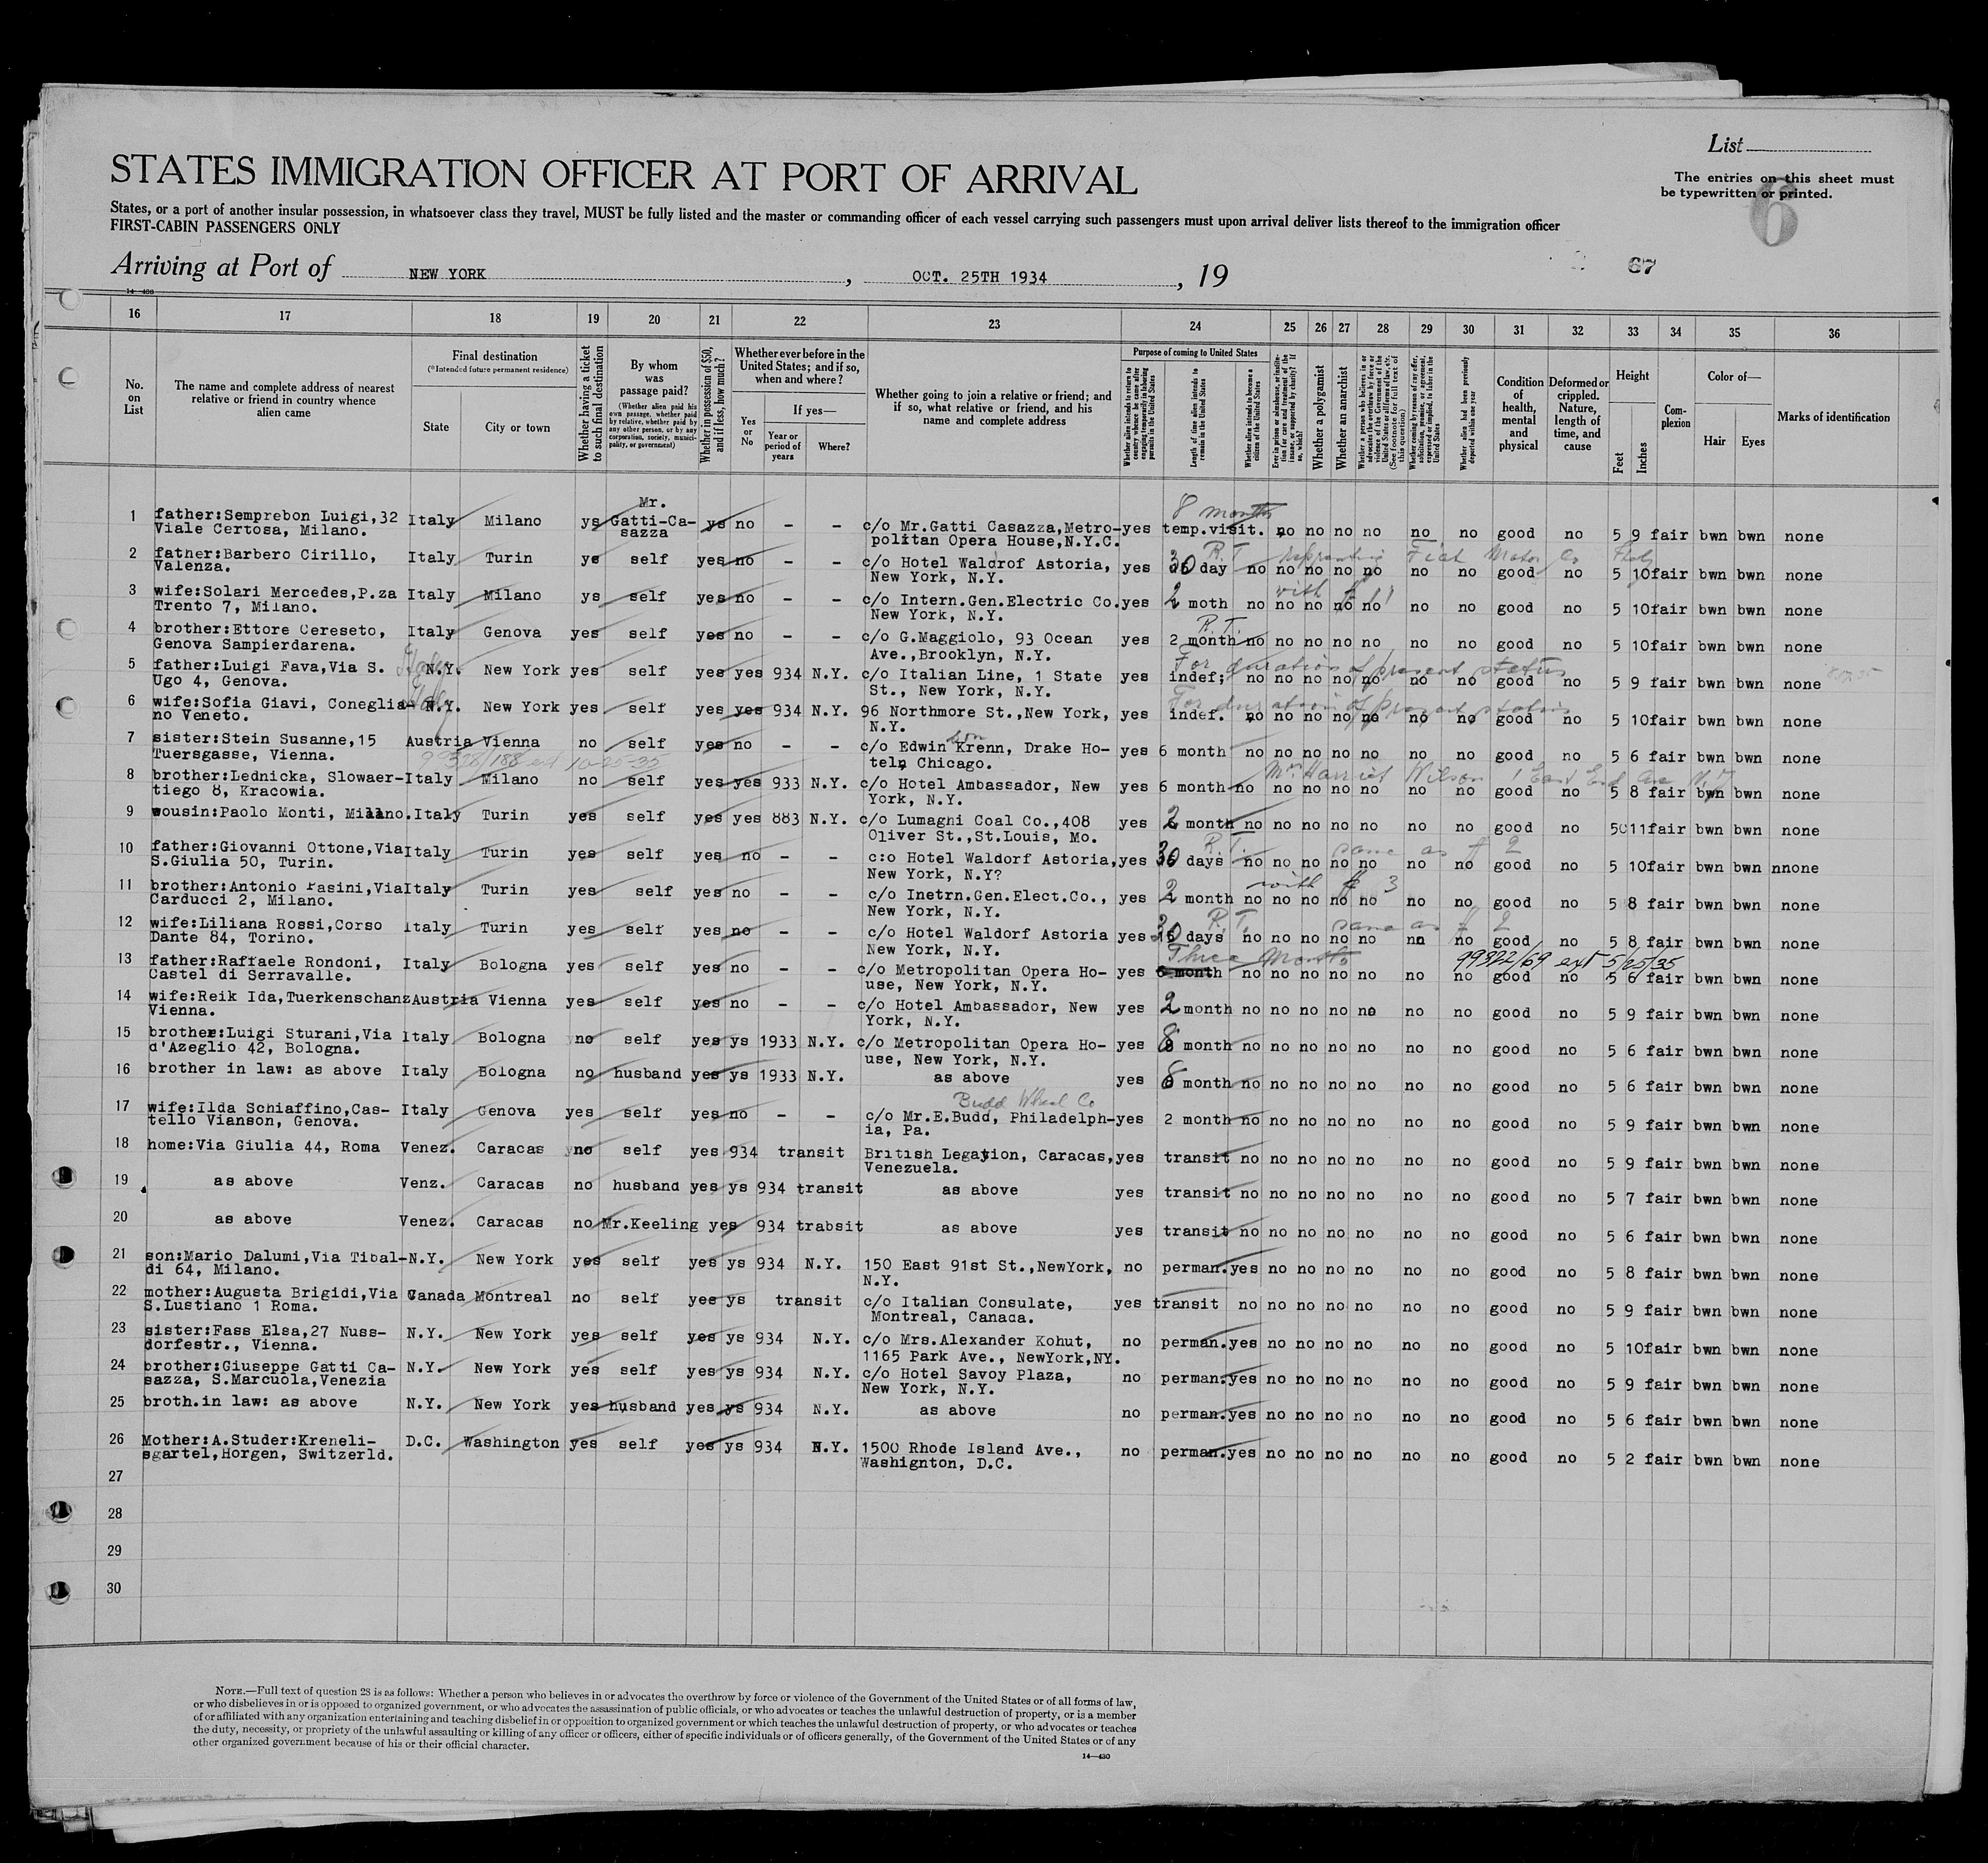 List
The entries on this sheet must
be typewritten or printed.
6
STATES IMMIGRATION OFFICER AT PORT OF ARRIVAL
States, or a port of another insular possession, in whatsoever class they travel, MUST be fully listed and the master or commanding officer of each vessel carrying such passengers must upon arrival deliver lists thereof to the immigration officer
FIRST-CABIN PASSENGERS ONLY
Arriving at Port of NEW YORK , OCT. 25TH 1934 , 19 67
14-430
16 17 18 19 20 21 22 23 24 25 26 27 28 29 30 31 32 33 34 35 36
No. on List
The name and complete address of nearest relative or friend in country whence alien came
Final destination
(*Intended future permanent residence)
State
City or town
Whether having a ticket to such final destination
By whom was passage paid?
(Whether alien paid his own passage, whether paid by relative, whether paid by any other person, or by any corporation, society, municipality, or government)
Whether in possession of $50, and if less, how much?
Whether ever before in the United States; and if so, when and where?
Yes or No
If yes—
Year or period of years
Where?
Whether going to join a relative or friend; and if so, what relative or friend, and his name and complete address
Purpose of coming to United States
Whether alien intends to return to country whence he came after engaging temporarily in laboring pursuits in the United States
Length of time alien intends to remain in the United States
Whether alien intends to become a citizen of the United States
Ever in prison or almshouse, or institution for care and treatment of the insane, or supported by charity? If so, which?
Whether a polygamist
Whether an anarchist
Whether a person who believes in or advocates the overthrow by force or violence of the Government of the United States or all forms of law, etc. (See footnote for full text of this question)
Whether coming by reason of any offer, solicitation, promise, or agreement, expressed or implied, to labor in the United States
Whether alien had been previously deported within one year
Condition of health, mental and physical
Deformed or crippled. Nature, length of time, and cause
Height
Feet
Inches
Complexion
Color of—
Hair
Eyes
Marks of identification
Mr. 8 months
1 father:Semprebon Luigi,32 Italy Milano ys Gatti-Ca- ys no - - c/o Mr.Gatti Casazza,Metro- yes temp.visit. no no no no no no good no 5 9 fair bwn bwn none
Viale Certosa, Milano. sazza politan Opera House,N.Y.C.
R.T. representing Fiat Motor Co Italy
2 father:Barbero Cirillo, Italy Turin ys self yes no - - c/o Hotel Waldrof Astoria, yes 30 day no no no no no no no good no 5 10 fair bwn bwn none
Valenza. New York, N.Y.
with # 11
3 wife:Solari Mercedes,P.za Italy Milano ys self yes no - - c/o Intern.Gen.Electric Co. yes 2 moth no no no no no no no good no 5 10 fair bwn bwn none
Trento 7, Milano. New York, N.Y.
R.T.
4 brother:Ettore Cereseto, Italy Genova yes self yes no - - c/o G.Maggiolo, 93 Ocean yes 2 month no no no no no no no good no 5 10 fair bwn bwn none
Genova Sampierdarena. Ave.,Brooklyn, N.Y.
Italy For duration of present status
5 father:Luigi Fava,Via S. N.Y. New York yes self yes yes 934 N.Y. c/o Italian Line, 1 State yes indef; no no no no no no no good no 5 9 fair bwn bwn none
Ugo 4, Genova. St., New York, N.Y.
Italy For duration of present status
6 wife:Sofia Giavi, Coneglia- N.Y. New York yes self yes yes 934 N.Y. 96 Northmore St.,New York, yes indef. no no no no no no no good no 5 10 fair bwn bwn none
no Veneto. N.Y.
7 sister:Stein Susanne,15 Austria Vienna no self yes no - - c/o Edwin Krenn, Drake Ho- yes 6 month no no no no no no no good no 5 6 fair bwn bwn none
Tuersgasse, Vienna. 99328/188 ext 10-25-35 teln Chicago.
Mrs Harriet Wilson 1 East End Ave N.Y
8 brother:Lednicka, Slowaer- Italy Milano no self yes yes 933 N.Y. c/o Hotel Ambassador, New yes 6 month no no no no no no no good no 5 8 fair bwn bwn none
tiego 8, Kracowia. York, N.Y.
9 cousin:Paolo Monti, Milano. Italy Turin yes self yes yes 883 N.Y. c/o Lumaghi Coal Co.,408 yes 2 month no no no no no no no good no 5 11 fair bwn bwn none
Oliver St.,St.Louis, Mo.
R.T. same as # 2
10 father:Giovanni Ottone,Via Italy Turin yes self yes no - - c:o Hotel Waldorf Astoria, yes 30 days no no no no no no no good no 5 10 fair bwn bwn nnone
S.Giulia 50, Turin. New York, N.Y?
with # 3
11 brother:Antonio Fasini,Via Italy Turin yes self yes no - - c/o Inetrn.Gen.Elect.Co., yes 2 month no no no no no no no good no 5 8 fair bwn bwn none
Carducci 2, Milano. New York, N.Y.
R.T. same as # 2
12 wife:Liliana Rossi,Corso Italy Turin yes self yes no - - c/o Hotel Waldorf Astoria yes 30 days no no no no no no no good no 5 8 fair bwn bwn none
Dante 84, Torino. New York, N.Y.
Three Months 99322/69 ext 5/25/35
13 father:Raffaele Rondoni, Italy Bologna yes self yes no - - c/o Metropolitan Opera Ho- yes 6 month no no no no no no no good no 5 6 fair bwn bwn none
Castel di Serravalle. use, New York, N.Y.
14 wife:Reik Ida,Tuerkenschanz Austria Vienna yes self yes no - - c/o Hotel Ambassador, New yes 2 month no no no no no no no good no 5 9 fair bwn bwn none
Vienna. York, N.Y.
15 brother:Luigi Sturani,Via Italy Bologna no self yes ys 1933 N.Y. c/o Metropolitan Opera Ho- yes 8 month no no no no no no no good no 5 6 fair bwn bwn none
d'Azeglio 42, Bologna. use, New York, N.Y.
16 brother in law: as above Italy Bologna no husband yes ys 1933 N.Y. as above yes 8 month no no no no no no no good no 5 6 fair bwn bwn none
Budd Wheel Co
17 wife:Ilda Schiaffino,Cas- Italy Genova yes self yes no - - c/o Mr.E.Budd, Philadelph- yes 2 month no no no no no no no good no 5 9 fair bwn bwn none
tello Vianson, Genova. ia, Pa.
18 home:Via Giulia 44, Roma Venez. Caracas no self yes 934 transit British Legation, Caracas, yes transit no no no no no no no good no 5 9 fair bwn bwn none
Venezuela.
19 as above Venz. Caracas no husband yes ys 934 transit as above yes transit no no no no no no no good no 5 7 fair bwn bwn none
20 as above Venez. Caracas no Mr.Keeling yes 934 trabsit as above yes transit no no no no no no no good no 5 6 fair bwn bwn none
21 son:Mario Dalumi,Via Tibal- N.Y. New York yes self yes ys 934 N.Y. 150 East 91st St.,NewYork, no perman. yes no no no no no no good no 5 8 fair bwn bwn none
di 64, Milano. N.Y.
22 mother:Augusta Brigidi,Via Canada Montreal no self yes ys transit c/o Italian Consulate, yes transit no no no no no no no good no 5 9 fair bwn bwn none
S.Lustiano 1 Roma. Montreal, Canada.
23 sister:Fass Elsa,27 Nuss- N.Y. New York yes self yes ys 934 N.Y. c/o Mrs.Alexander Kohut, no perman. yes no no no no no no good no 5 10 fair bwn bwn none
dorfestr., Vienna. 1165 Park Ave., NewYork,NY.
24 brother:Giuseppe Gatti Ca- N.Y. New York yes self yes ys 934 N.Y. c/o Hotel Savoy Plaza, no perman. yes no no no no no no good no 5 9 fair bwn bwn none
sazza, S.Marcuola,Venezia New York, N.Y.
25 broth.in law: as above N.Y. New York yes husband yes ys 934 N.Y. as above no perman. yes no no no no no no good no 5 6 fair bwn bwn none
26 Mother:A.Studer:Kreneli- D.C. Washington yes self yes ys 934 N.Y. 1500 Rhode Island Ave., no perman. yes no no no no no no good no 5 2 fair bwn bwn none
sgartel,Horgen, Switzerld. Washignton, D.C.
27
28
29
30
NOTE.—Full text of question 28 is as follows: Whether a person who believes in or advocates the overthrow by force or violence of the Government of the United States or of all forms of law,
or who disbelieves in or is opposed to organized government, or who advocates the assassination of public officials, or who advocates or teaches the unlawful destruction of property, or is a member
of or affiliated with any organization entertaining and teaching disbelief in or opposition to organized government or which teaches the unlawful destruction of property, or who advocates or teaches
the duty, necessity, or propriety of the unlawful assaulting or killing of any officer or officers, either of specific individuals or of officers generally, of the Government of the United States or of any
other organized government because of his or their official character.
14—430